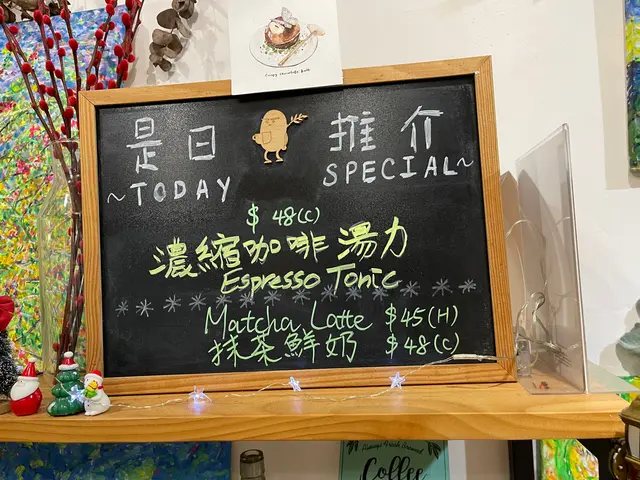 是日 推介
~TODAY SPECIAL~
$48(C)
濃縮咖啡湯力
Espresso Tonic
Matcha Latte $45(H)
抹茶鮮奶 $48(C)
Coffee